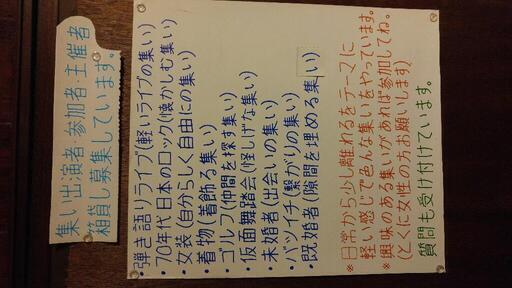 集い出演者・参加者・主催者
箱貸し募集しています。
・弾き語りライブ(軽いライブの集い)
・70年代日本のロック(懐かしむ集い)
・女装(自分らしく自由にの集い)
・着物(着飾る集い)
・ゴルフ(仲間を探す集い)
・仮面舞踏会(怪しげな集い)
・未婚者(出会いの集い)
・バツイチ(繋がりの集い)
・既婚者(隙間を埋める集い)
※日常から少し離れるをテーマに
軽い感じで色んな集いをやっています。
※興味のある集いがあれば参加してね。
(とくに女性の方お願いします)
質問も受け付けています。